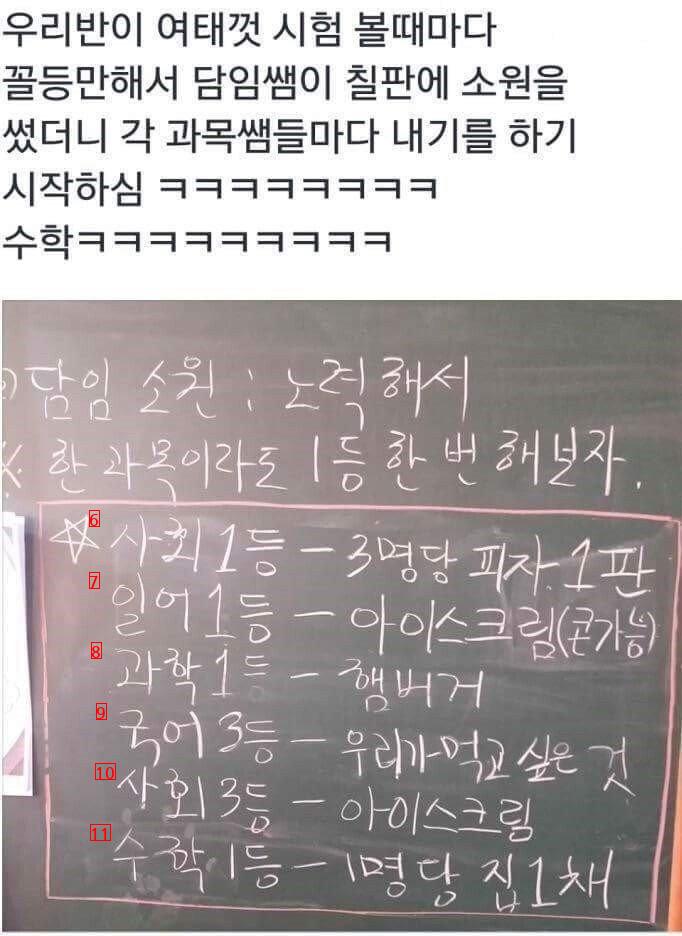 우리반이 여태껏 시험 볼때마다
꼴등만해서 담임쌤이 칠판에 소원을
썼더니 각 과목쌤들마다 내기를 하기
시작하심 ㅋㅋㅋㅋㅋㅋㅋㅋ
수학ㅋㅋㅋㅋㅋㅋㅋㅋㅋ
담임 소원 : 노력해서
※ 한 과목이라도 1등 한 번 해보자.
6 ☆ 사회 1등 - 3명당 피자 1판
7 일어 1등 - 아이스크림(콘가능)
8 과학 1등 - 햄버거
9 국어 3등 - 우리가 먹고 싶은 것
10 사회 3등 - 아이스크림
11 수학 1등 - 1명당 집 1채